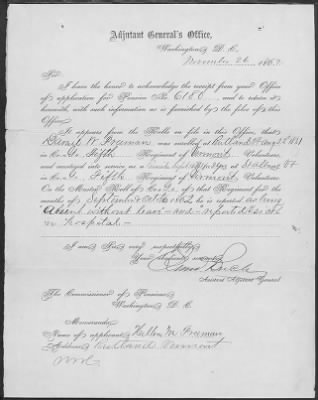 Adjutant General's Office,
Washington, D. C.
November 26, 1862
Sir:
I have the honor to acknowledge the receipt from your Office
of application for Pension No. 6180, and to return it
herewith with such information as is furnished by the files of this
Office.
It appears from the Rolls on file in this Office, that
W. Freeman was enrolled at Rutland
in Co. G, Fifth Regiment of Vermont Volunteers
and mustered into service as a at St Albans Vt
in Co. G, Fifth Regiment of Vermont, Volunteers.
On the Muster Roll of Co. G, of that Regiment for the
months of September & Oct 1862, he is reported as being
"Absent without leave" and reported
in hospital.
I am, Sir, very respectfully,
Your obedient servant,
Assistant Adjutant General
The Commissioner of Pensions
Washington, D. C.
Memoranda:
Name of applicant, M. Freeman
Address, Rutland Vermont